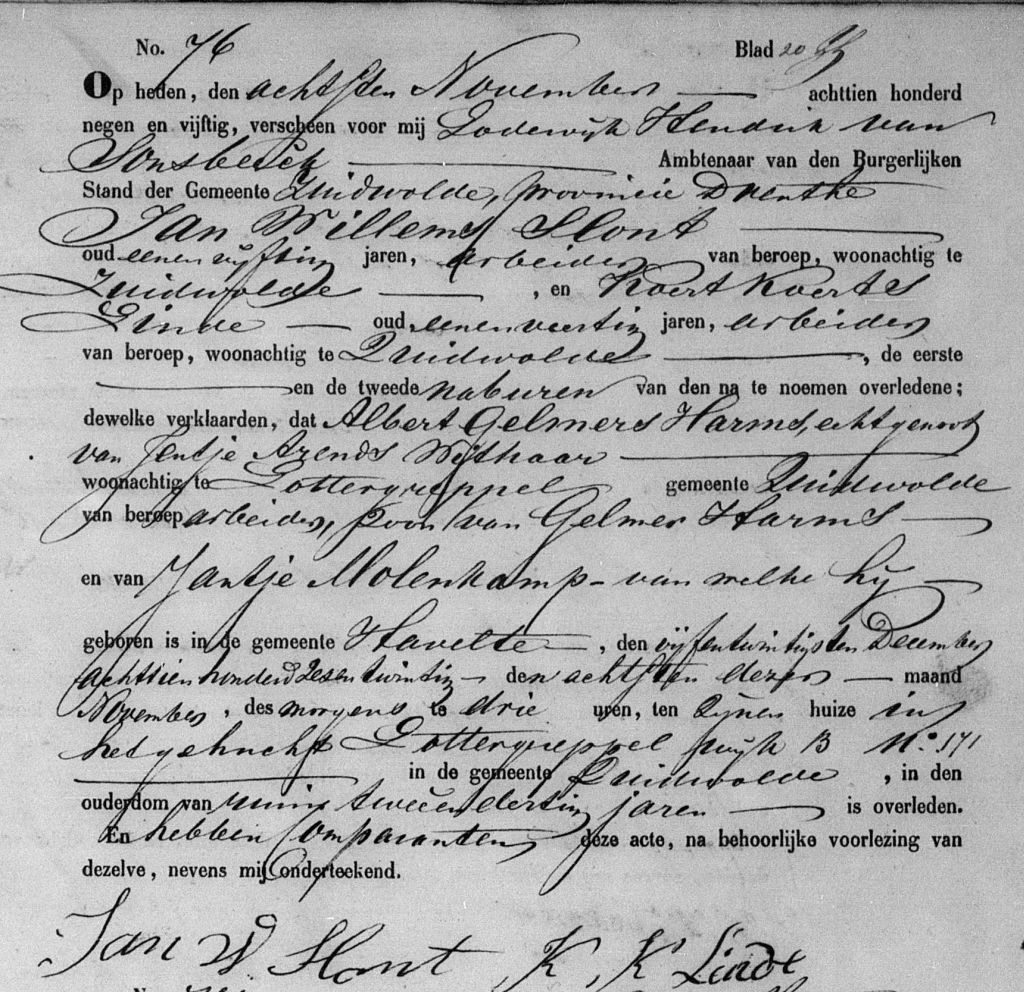 No. 76 Blad 20
Op heden, den achtsten November achttien honderd
negen en vijftig, verscheen voor mij Lodewijk Hendrik van
Sonsbeeck Ambtenaar van den Burgerlijken
Stand der Gemeente Zuidwolde, provincie Drenthe
Jan Willems Slont
oud eenenvijftig jaren, arbeider van beroep, woonachtig te
Zuidwolde , en Koert Koerts
Linde oud eenenveertig jaren, arbeider
van beroep, woonachtig te Zuidwolde , de eerste
en de tweede naburen van den na te noemen overledene;
dewelke verklaarden, dat Albert Gelmers Harms, echtgenoot
van Jentje Arends Withaar
woonachtig te Lottergreppel gemeente Zuidwolde
van beroep arbeider, zoon van Gelmer Harms
en van Jantje Molenkamp - van welke hij
geboren is in de gemeente Havelte , den vijfentwintigsten December
achttienhonderd zesentwintig - den achtsten dezer maand
November , des morgens te drie uren, ten zijnen huize in
het gehucht Lottergreppel wijk B No. 171
in de gemeente Zuidwolde , in den
ouderdom van ruim tweeendertig jaren is overleden.
En hebben Comparanten deze acte, na behoorlijke voorlezing van
dezelve, nevens mij onderteekend.
Jan W Slont K. K Linde